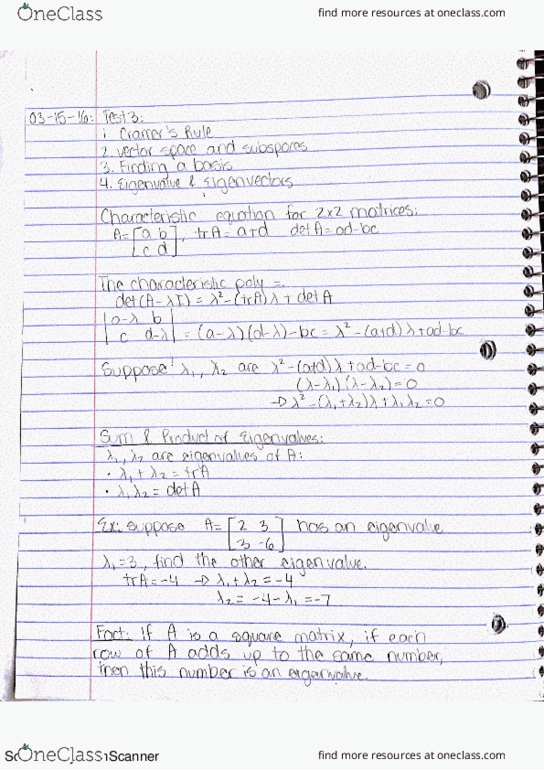 OneClass
find more resources at oneclass.com
03-15-16: Test 3:
1. Cramer's Rule
2. vector space and subspaces
3. Finding a basis
4. Eigenvalue & Eigenvectors
Characteristic equation for 2x2 matrices:
A = [a b
c d], trA = a+d detA = ad-bc
The characteristic poly =
det(A-λI) = λ² - (trA)λ + detA
|a-λ b
c d-λ| = (a-λ)(d-λ)-bc = λ²-(a+d)λ+ad-bc
Suppose λ₁, λ₂ are λ²-(a+d)λ+ad-bc=0
(λ-λ₁)(λ-λ₂)=0
→ λ²-(λ₁+λ₂)λ+λ₁λ₂=0
Sum & Product of Eigenvalues:
λ₁, λ₂ are eigenvalues of A:
• λ₁+λ₂ = trA
• λ₁λ₂ = detA
Ex: suppose A = [2 3
3 -6] has an eigenvalue
λ₁=3, find the other eigenvalue.
trA=-4 → λ₁+λ₂=-4
λ₂ = -4-λ₁ = -7
Fact: If A is a square matrix, if each
row of A adds up to the same number,
then this number is an eigenvalue.
OneClass
Scanner
find more resources at oneclass.com